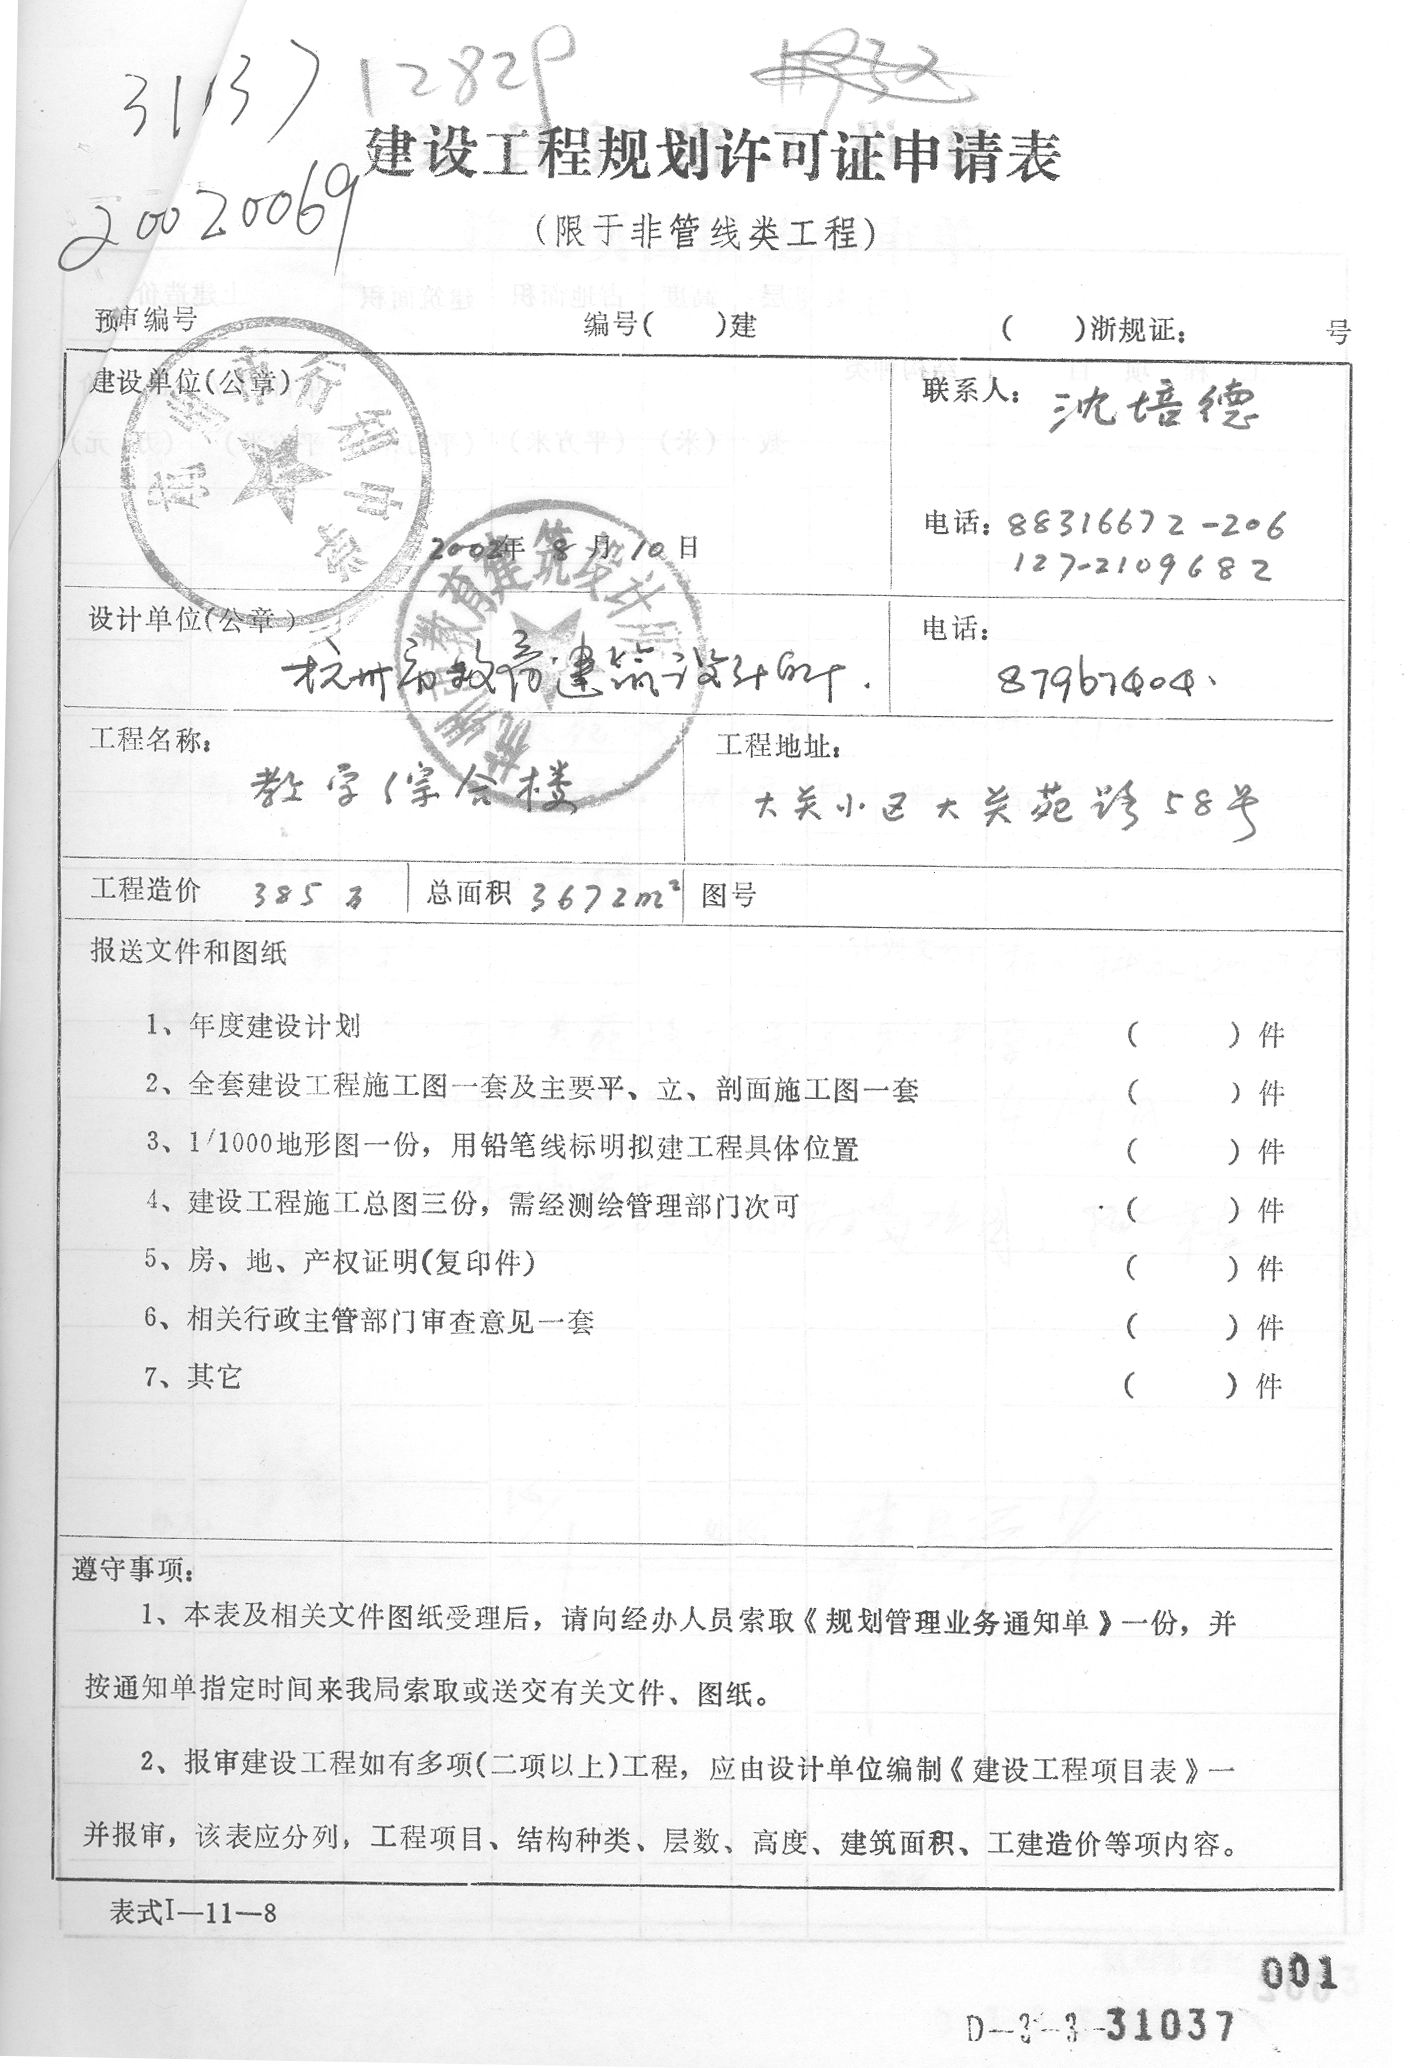 31137 1282P
20020069
建设工程规划许可证申请表
(限于非管线类工程)
预审编号 编号( )建 ( )浙规证: 号
建设单位(公章) 联系人: 沈培德
电话: 88316672-206
127-2109682
2002年 8 月 10 日
设计单位(公章) 电话:
杭州市教育建筑设计所. 87967404.
工程名称: 工程地址:
教学综合楼 大关小区大关苑路58号
工程造价 385万 总面积 3672m² 图号
报送文件和图纸
1、年度建设计划 ( ) 件
2、全套建设工程施工图一套及主要平、立、剖面施工图一套 ( ) 件
3、1/1000地形图一份，用铅笔线标明拟建工程具体位置 ( ) 件
4、建设工程施工总图三份，需经测绘管理部门次可 ( ) 件
5、房、地、产权证明(复印件) ( ) 件
6、相关行政主管部门审查意见一套 ( ) 件
7、其它 ( ) 件
遵守事项:
1、本表及相关文件图纸受理后，请向经办人员索取《规划管理业务通知单》一份，并
按通知单指定时间来我局索取或送交有关文件、图纸。
2、报审建设工程如有多项(二项以上)工程，应由设计单位编制《建设工程项目表》一
并报审，该表应分列，工程项目、结构种类、层数、高度、建筑面积、工建造价等项内容。
表式I—11—8
001
D-3-3-31037